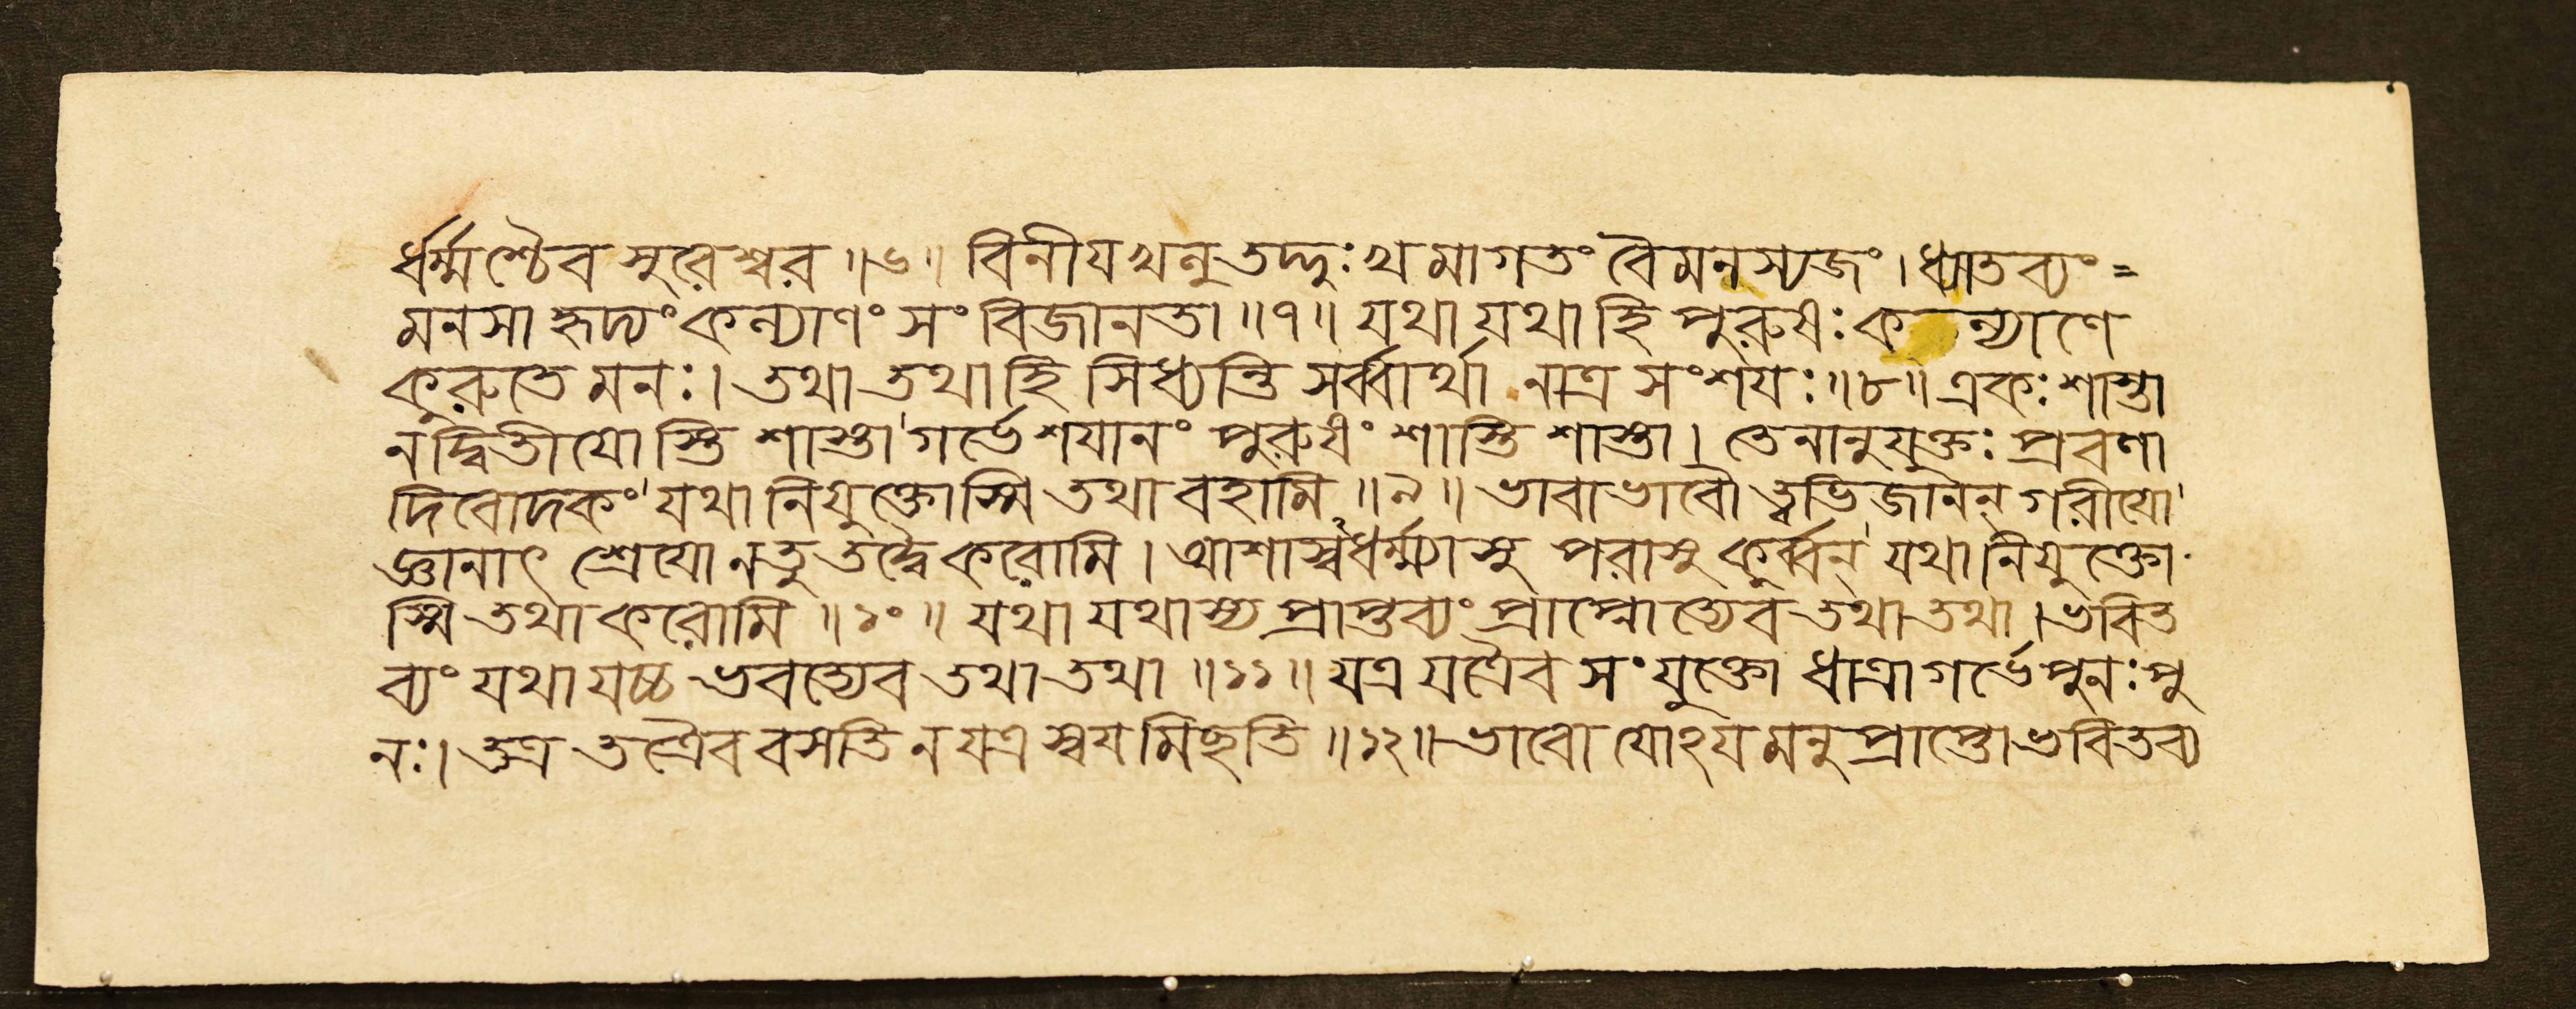 র্ধর্ম্মশ্চৈব সুরেশ্বর ॥৬॥ বিনীয খলু তদ্দুঃখমাগতং বৈমনস্যজং । ধ্যাতব্যং=
মনসা হৃদ্যং কল্যাণং সংবিজানতা ॥৭॥ যথা যথা হি পুরুষঃ কল্যাণে
কুরুতে মনঃ । তথা তথা হি সিধ্যন্তি সর্ব্বার্থা নাত্র সংশযঃ ॥৮॥ একঃ শাস্তা
ন দ্বিতীযোস্তি শাস্তা গর্ভে শযানং পুরুষং শাস্তি শাস্তা । তেনানুযুক্তঃ প্রবণা
দিবোদকং যথা নিযুক্তোস্মি তথা বহামি ॥৯॥ ভাবাভাবৌ ত্বভিজানন্ গরীযো
জ্ঞানাৎ শ্রেযো ন তু তদ্বৈ করোমি । আশাসু ধর্ম্ম্যাসু পরাসু কুর্ব্বন্ যথা নিযুক্তো
স্মি তথা করোমি ॥১০॥ যথা যথাস্য প্রাপ্তব্যং প্রাপ্নোত্যেব তথা তথা । ভবিত
ব্যং যথা যচ্চ ভবত্যেব তথা তথা ॥১১॥ যত্র যত্রৈব সংযুক্তো ধাত্রা গর্ভে পুনঃ পু
নঃ । তত্র তত্রৈব বসতি ন যত্র স্বযমিছতি ॥১২॥ ভাবো যোঽযমনুপ্রাপ্তো ভবিতব্য